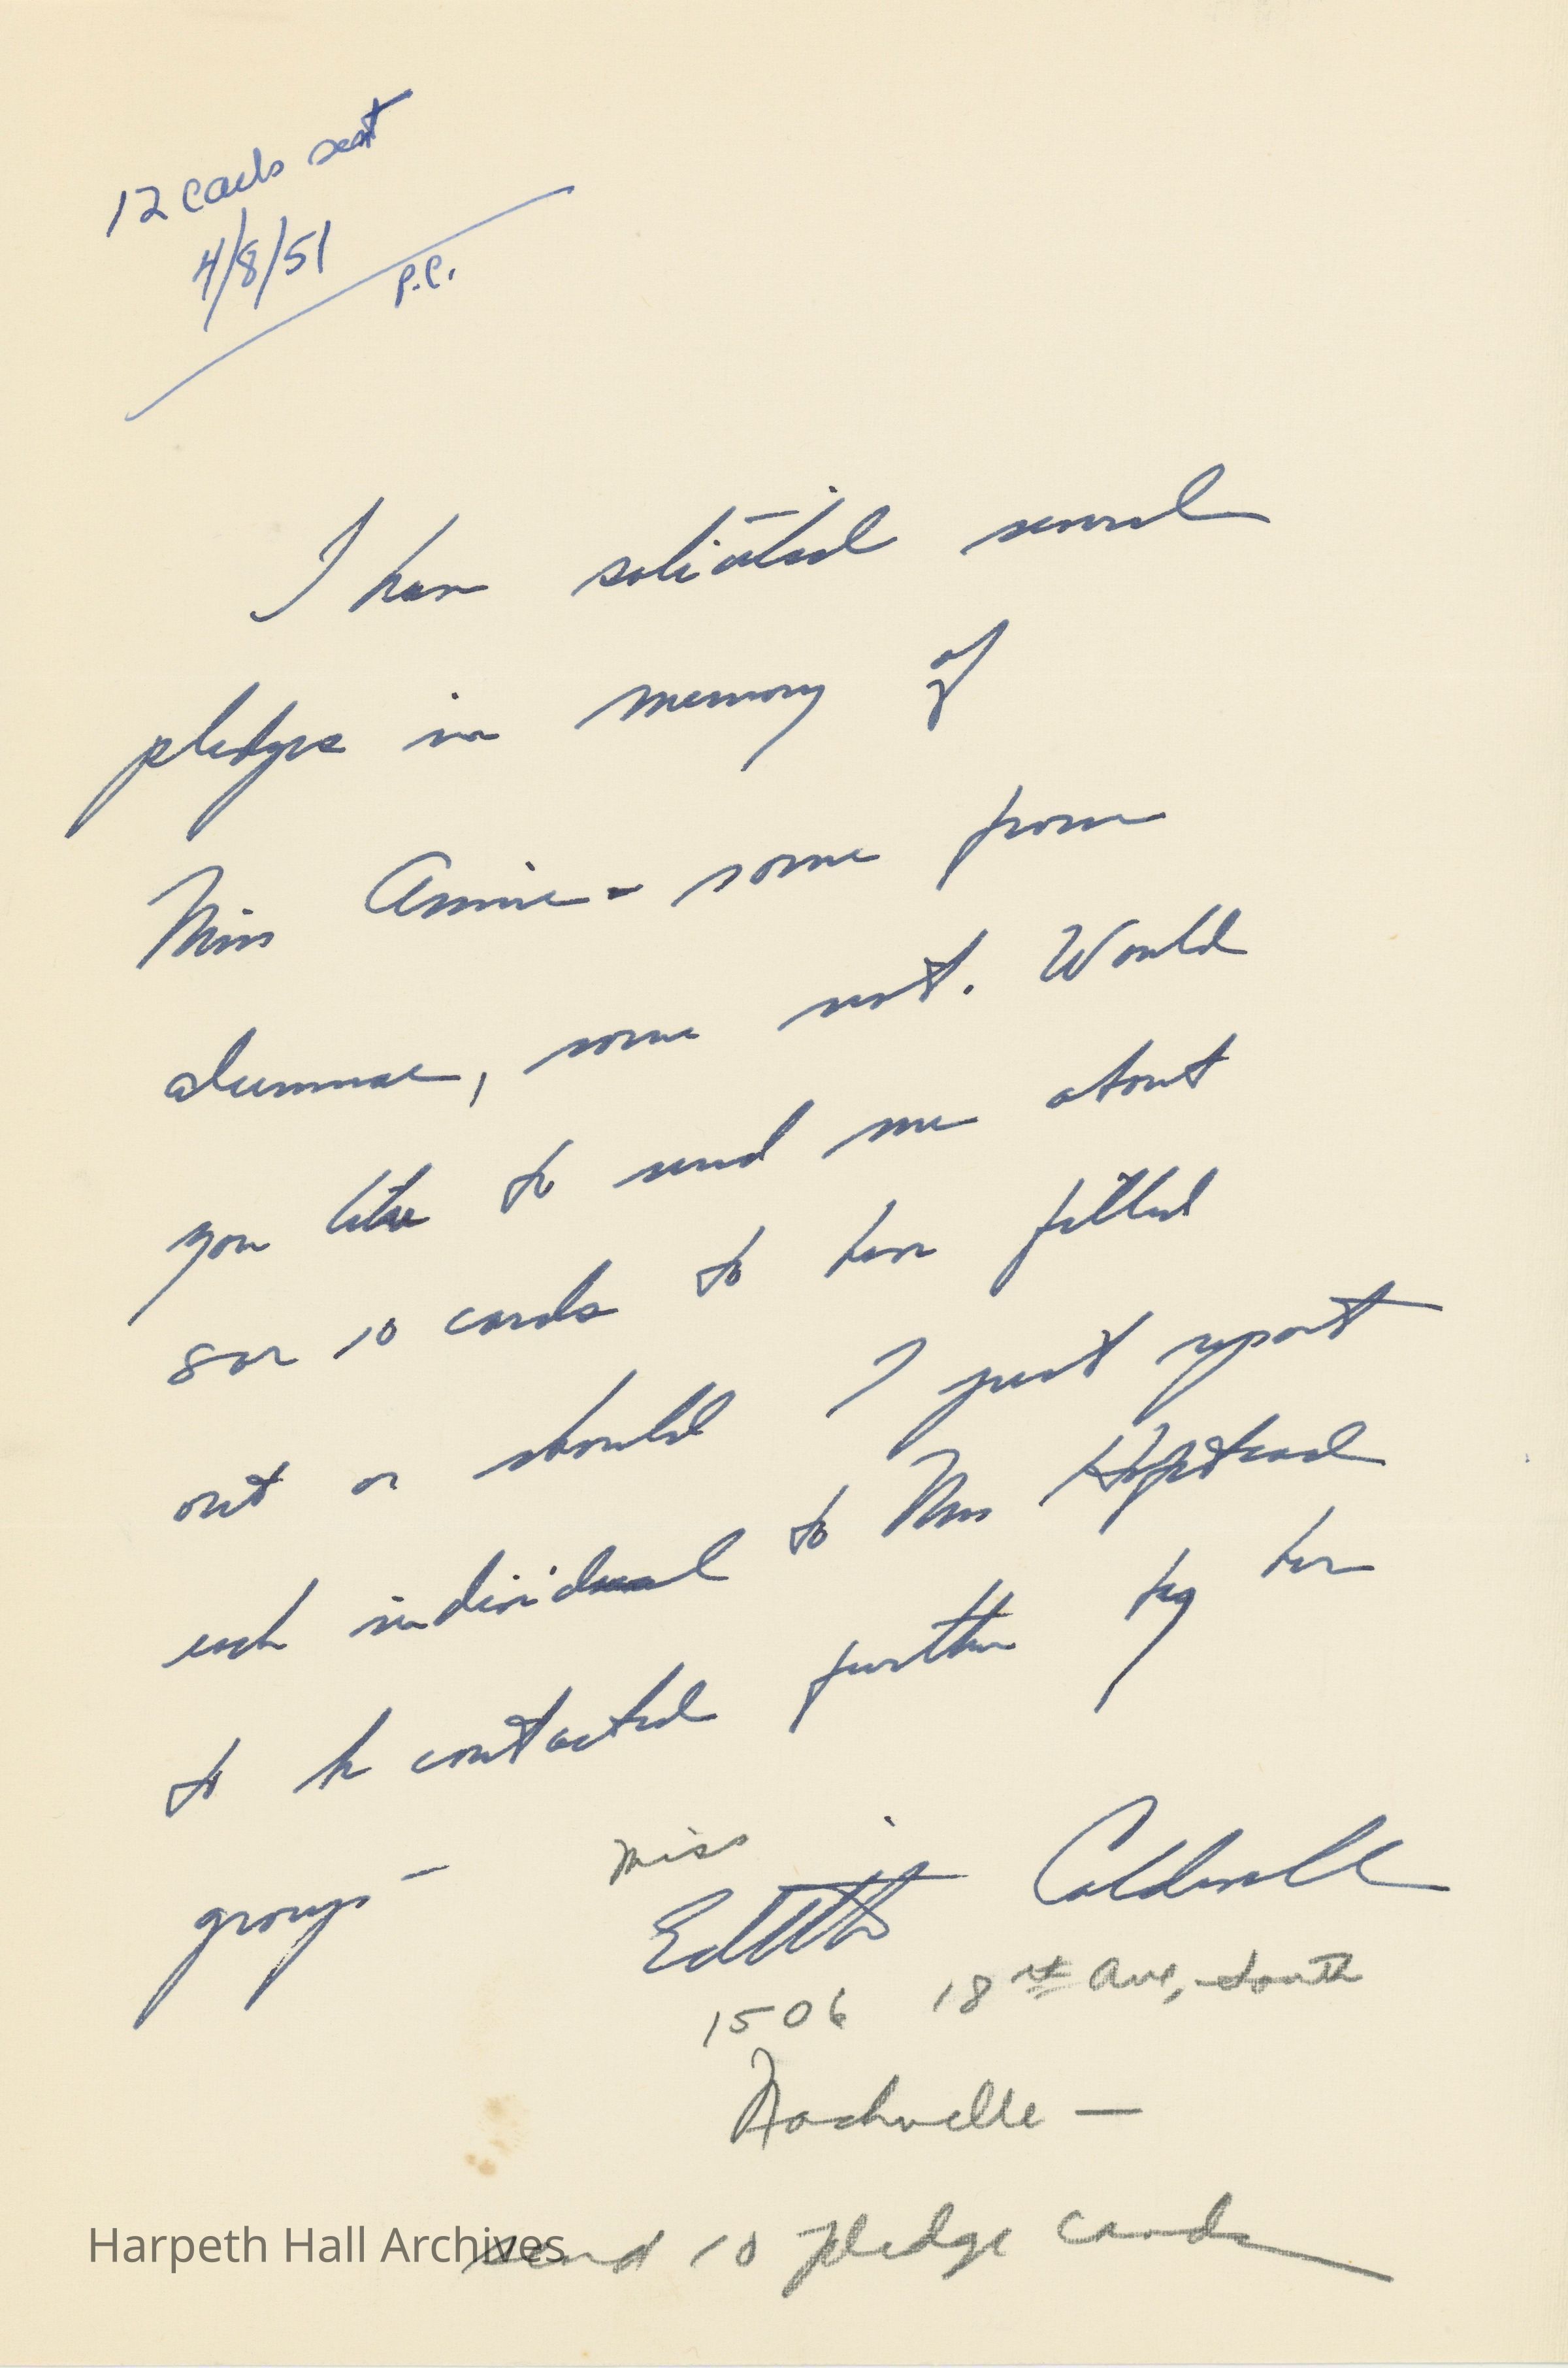 12 cards sent
4/8/51
P.C.
I have solicited several
pledges in memory of
Miss Annie - some from
alumnae, some not. Would
you like to send me about
8 or 10 cards to have filled
out or should I just report
each individual to Mrs
to be contacted further by her
group -
Miss
Edith Caldwell
1506 18th Ave, South
Nashville -
send 10 pledge cards
Harpeth Hall Archives